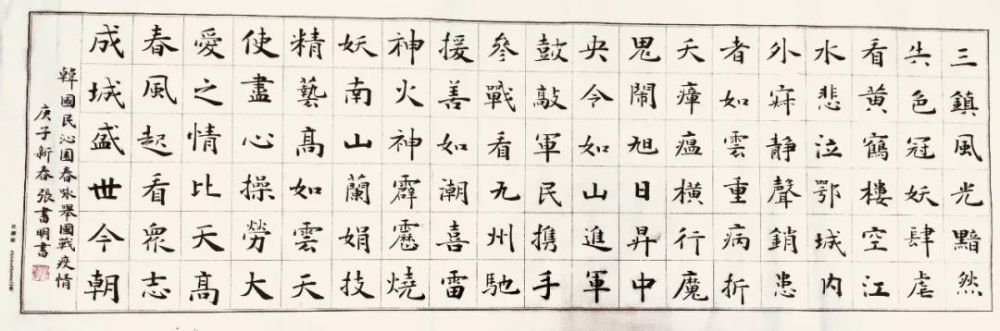 三鎮風光黯然
失色冠妖肆虐
看黄鶴樓空江
水悲泣鄂城内
外寂静聲銷患
者如雲重病折
夭瘴瘟横行魔
鬼鬧旭日昇中
央令如山進軍
鼓敲軍民携手
參戰看九州馳
援善如潮喜雷
神火神霹靂燒
妖南山蘭娟技
精藝高如雲天
使盡心操勞大
愛之情比天高
春風起看眾志
成城盛世今朝
韓國民沁園春咏舉國戰疫情
庚子新春張書明書